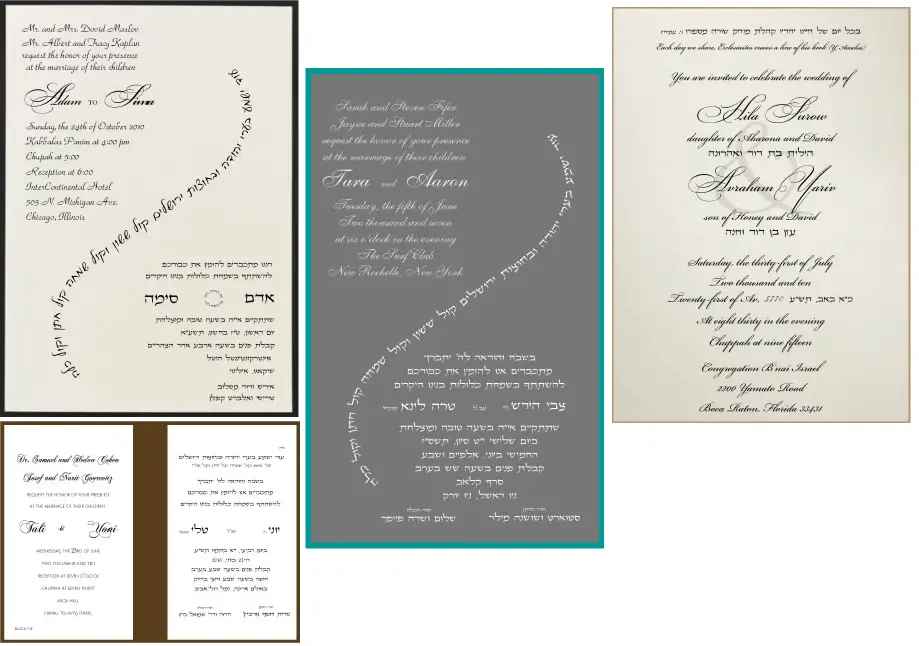 Mr. and Mrs. David Maslov
Mr. Albert and Tracy Kaplan
request the honor of your presence
at the marriage of their children
Adam TO Sima
Sunday, the 24th of October 2010
Kabbalas Panim at 4:00 pm
Chupah at 5:00
Reception at 6:00
InterContinental Hotel
505 N. Michigan Ave.
Chicago, Illinois
עוד ישמע בערי יהודה ובחוצות ירושלים קול ששון וקול שמחה קול חתן וקול כלה
הננו מתכבדים להזמין את כבודכם
להשתתף בשמחת כלולות בנינו היקרים
אדם סימה
שתתקיים אי"ה בשעה טובה ומוצלחת
יום ראשון, ט"ז בחשון, תשע"א
קבלת פנים בשעה ארבע אחר הצהריים
אינטרקונטיננטל הוטל
שיקאגו, אילינוי
איריס ודוד מסלוב
טרייסי ואלברט קפלן
Sarah and Steven Fifer
Jayne and Stuart Miller
request the honor of your presence
at the marriage of their children
Tara and Aaron
Tuesday, the fifth of June
Two thousand and seven
at six o'clock in the evening
The Surf Club
New Rochelle, New York
עוד ישמע בערי יהודה ובחוצות ירושלים קול ששון וקול שמחה קול חתן וקול כלה
בשבח והודאה לה' יתברך
מתכבדים אנו להזמין את כבודכם
להשתתף בשמחת כלולות בנינו היקרים
צבי הירש עב"ג טרה לינא
שתתקיים אי"ה בשעה טובה ומוצלחת
ביום שלישי י"ט סיון, תשס"ז
החמישי ביוני, אלפיים ושבע
קבלת פנים בשעה שש בערב
סרף קלאב
ניו ראשל, ניו יורק
הורי החתן הורי הכלה
סטוארט ושושנה מילר שלום ושרה פייפר
בכל יום של חיינו יחדיו קהלת מוחק שורה מספרו
Each day we share, Ecclesiastes erases a line of his book (Y. Amichai)
You are invited to celebrate the wedding of
Hila Surow
daughter of Aharona and David
הילית בת דוד ואהרונה
Avraham Yariv
son of Honey and David
עוז בן דוד וחנה
Saturday, the thirty-first of July
Two thousand and ten
Twenty-first of Av, 5770 כ"א באב, תש"ע
At eight thirty in the evening
Chuppah at nine fifteen
Congregation B'nai Israel
2200 Yamato Road
Boca Raton, Florida 33431
Dr. Samuel and Cohen
Josef and Narit
REQUEST THE HONOR OF YOUR PRESENCE
AT THE MARRIAGE OF THEIR CHILDREN
Tali & Yoni
WEDNESDAY, THE 23RD OF JUNE
TWO THOUSAND AND TEN
RECEPTION AT SEVEN O'CLOCK
CHUPPAH AT SEVEN THIRTY
HALL
TEL-AVIV, ISRAEL
עוד ישמע בערי יהודה ובחוצות ירושלים
קול ששון וקול שמחה קול חתן וקול כלה
בשבח והודאה לה' יתברך
מתכבדים אנו להזמין את כבודכם
להשתתף בשמחת כלולות בנינו היקרים
יוני עב"ג טלי
ביום רביעי, י"א בתמוז תש"ע
2010
קבלת פנים בשעה שבע בערב
חופה בשעה שבע וחצי בדיוק